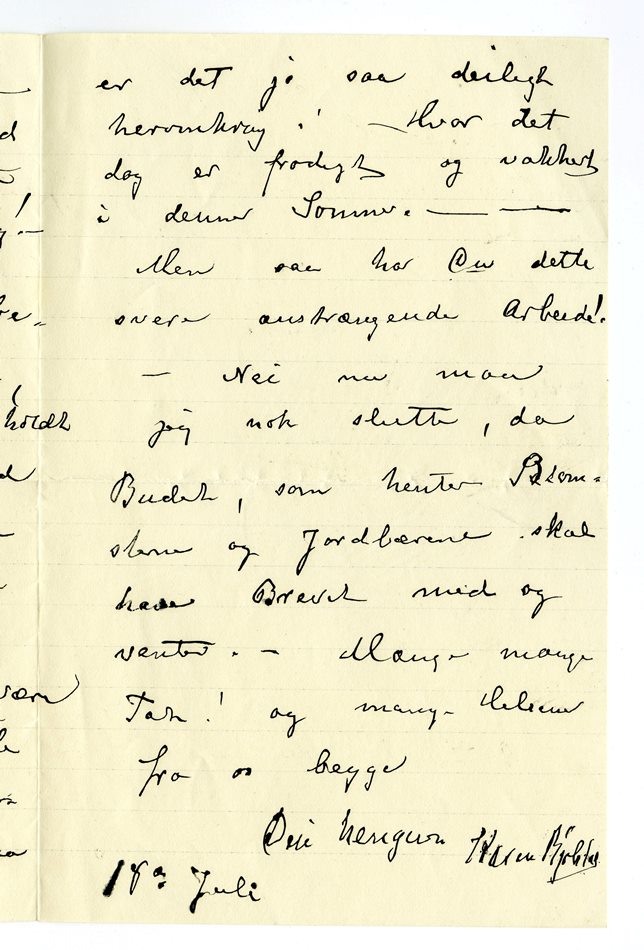 er det jo saa deiligt
heromkring! — Hvor det
dog er frodigt og vakkert
i denne Sommer. — —
Men saa har Du dette
svere anstrængende Arbeide!
— Nei nu maa
jeg nok slutte, da
Budet, som henter Blom-
sterne og Jordbærene skal
have Brevet med og
venter. — Mange mange
Tak! og mange Hilsener
fra os begge
Din hengivne Karen
18de Juli
holdt
være